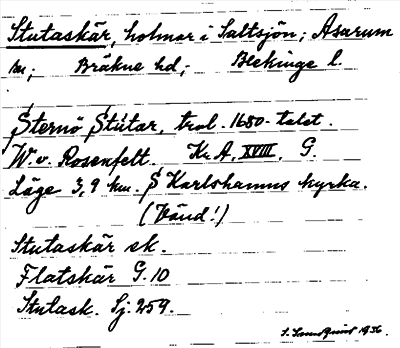 Stutaskär, holmar i Saltsjön; Asarum
sn; Bräkne hd; Blekinge l.
Sternö Stutar, trol. 1680-talet.
W. v. Rosenfelt. Kr. A, XVIII, G.
Läge 3,9 km. S Karlshamns kyrka.
(Vänd!)
Stutaskär ek.
Flatskär G. 10
Stutask. Sj. 259.
S. 1936.